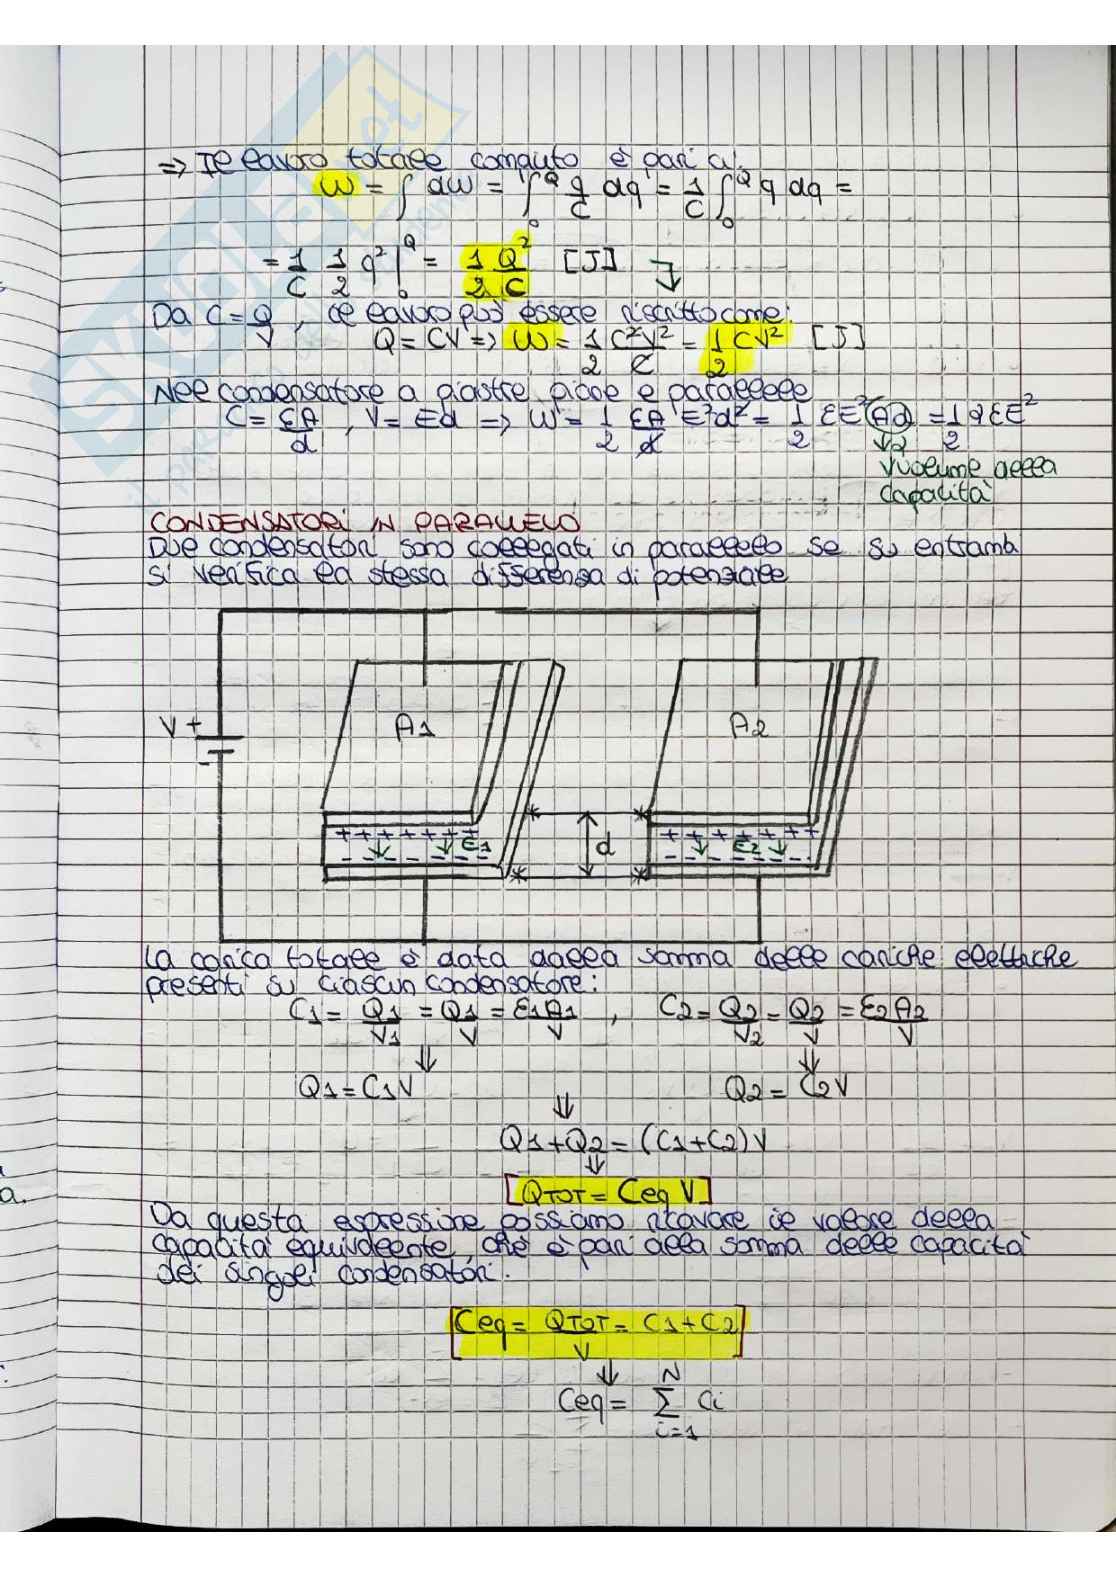 => Il lavoro totale compiuto è pari a:
W = ∫ dW = ∫₀^Q q/C dq = 1/C ∫₀^Q q dq =
= 1/C 1/2 q² |₀^Q = 1/2 Q²/C [J]
Da C = Q/V , il lavoro può essere riscritto come:
Q = CV => W = 1/2 C²V²/C = 1/2 CV² [J]
Nel condensatore a piastre piane e parallele
C = EA/d , V = Ed => W = 1/2 EA/d E²d² = 1/2 EE² (Ad) = 1/2 EE²
volume della
capacità
CONDENSATORI IN PARALLELO
Due condensatori sono collegati in parallelo se su entrambi
si verifica la stessa differenza di potenziale
V +
-
A1
A2
+ + + + + + +
E1
- - - - - -
d
+ + + + + + +
E2
- - - - - -
La carica totale è data dalla somma delle cariche elettriche
presenti su ciascun condensatore:
C1 = Q1/V1 = Q1/V = E1A1/V , C2 = Q2/V2 = Q2/V = E2A2/V
⇓ ⇓
Q1 = C1V Q2 = C2V
⇓
Q1 + Q2 = (C1 + C2) V
⇓
[QTOT = Ceq V]
Da questa espressione possiamo ricavare il valore della
capacità equivalente, che è pari alla somma delle capacità
dei singoli condensatori.
[Ceq = QTOT/V = C1 + C2]
⇓
Ceq = Σ_{i=1}^{N} Ci